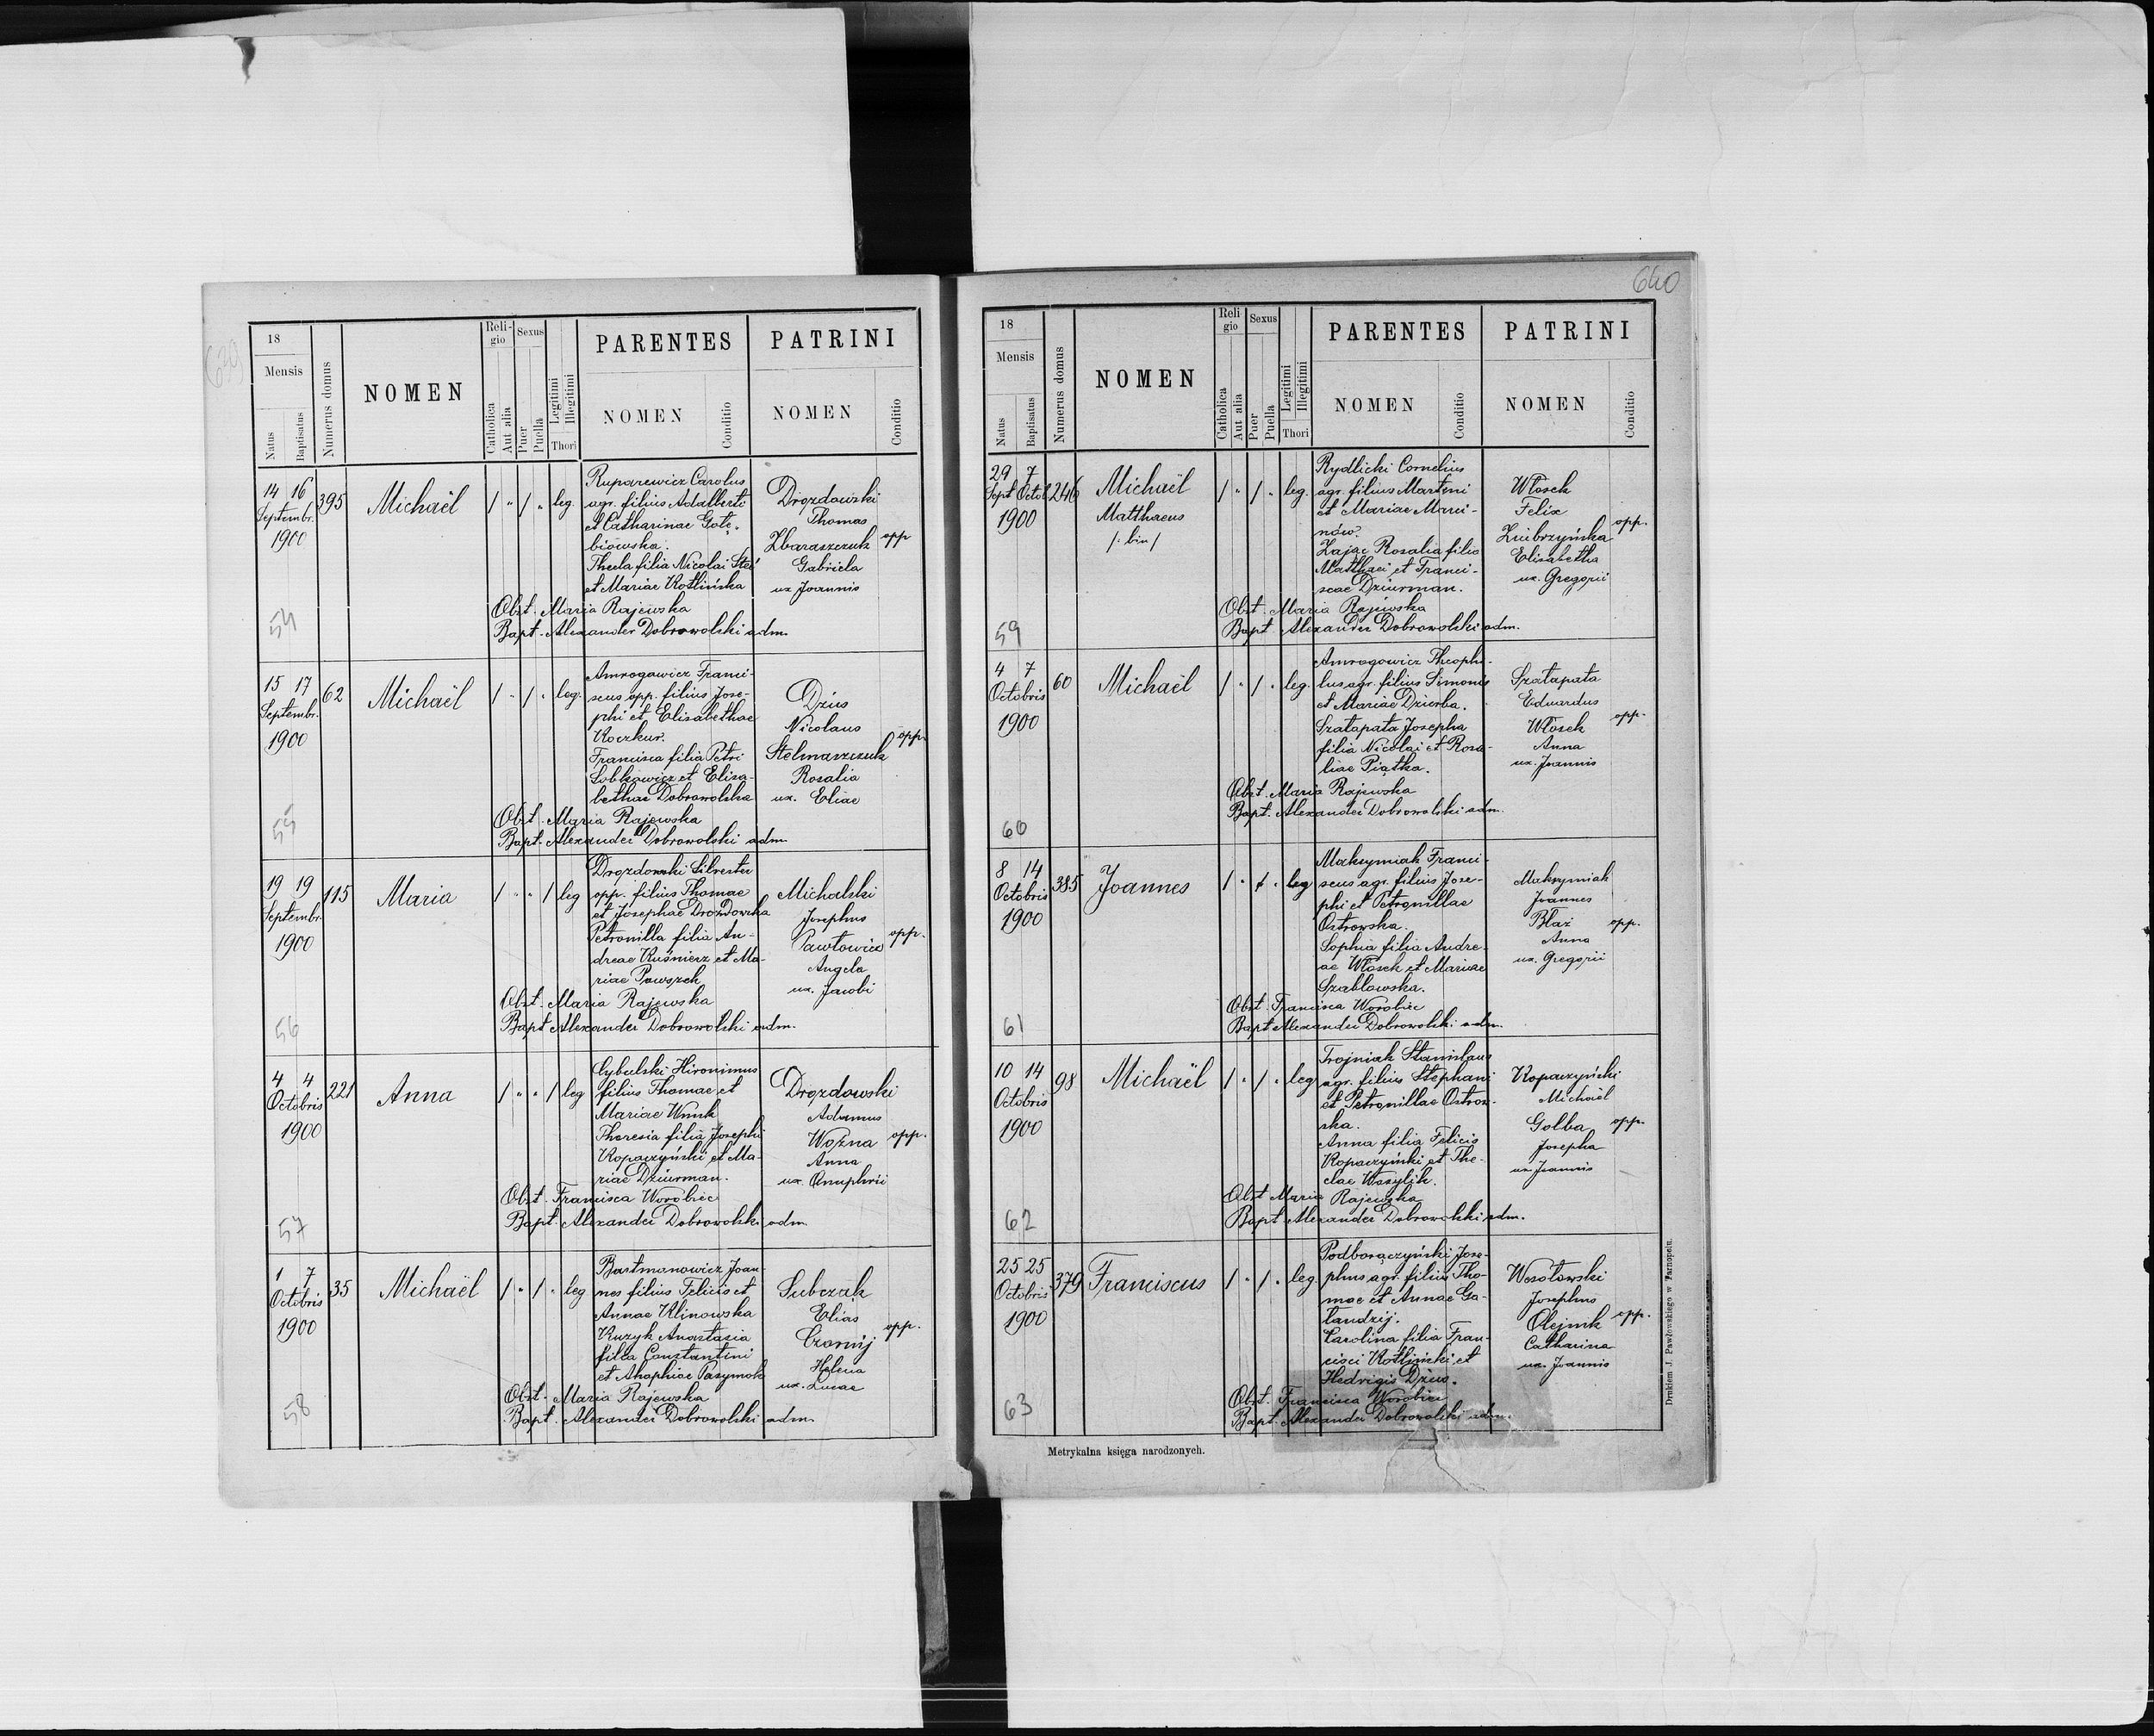 639
18
Mensis
Natus
Baptisatus
Numerus domus
NOMEN
Religio
Catholica
Aut alia
Sexus
Puer
Puella
Legitimi
Illegitimi
Thori
PARENTES
NOMEN
Conditio
PATRINI
NOMEN
Conditio
14 16
Septembr.
1900
395
Michaël
/ " / " leg.
Ruparewicz Carolus
agr. filius Adalberti
et Catharinae Gołę-
biowska.
Thecla filia Nicolai Steć
et Mariae Kotlińska
Drozdowski
Thomas
Zbaraszczuk
Gabriela
ux Joannis
opp
Obst. Maria Rajewska
Bapt. Alexander Dobrowolski adm.
54
15 17
Septembr.
1900
62
Michaël
/ " / " leg.
Amrogowicz Franci-
scus opp. filius Jose-
phi et Elisabethae
Koczkur.
Francisca filia Petri
Sobkowicz et Elisa-
bethae Dobrowolska
Dzius
Nicolaus
Stelmaszczuk
Rosalia
ux. Eliae
opp.
Obst. Maria Rajewska
Bapt. Alexander Dobrowolski adm.
55
19 19
Septembr.
1900
115
Maria
/ " " / leg
Drozdowski Silvester
opp. filius Thomae
et Josephae Drozdowska
Petronilla filia An-
dreae Kuśnierz et Ma-
riae Powszek
Michalski
Josephus
Pawłowicz
Angela
ux. Jacobi
opp.
Obst. Maria Rajewska
Bapt Alexander Dobrowolski adm.
56
4 4
Octobris
1900
221
Anna
/ " " / leg
Cybulski Hironimus
filius Thomae et
Mariae Wnuk
Theresia filia Josephi
Kopaczyński et Ma-
riae Dziurman.
Drozdowski
Adamus
Woźna
Anna
ux. Onuphrii
opp.
Obst. Francisca Worobiec
Bapt. Alexander Dobrowolski adm.
57
1 7
Octobris
1900
35
Michaël
/ " / " leg
Bartmanowicz Joan-
nes filius Felicis et
Annae Klinowska
Kuzyk Anastasia
filia Constantini
et Ahaphiae Pasymok
Subczak
Elias
Czornij
Helena
ux. Lucae
opp.
Obst. Maria Rajewska
Bapt. Alexander Dobrowolski adm.
58
640
18
Mensis
Natus
Baptisatus
Numerus domus
NOMEN
Religio
Catholica
Aut alia
Sexus
Puer
Puella
Legitimi
Illegitimi
Thori
PARENTES
NOMEN
Conditio
PATRINI
NOMEN
Conditio
29 7
Sept Octob
1900
246
Michaël
Matthaeus
/: bin /
/ " / " leg.
Rydlicki Cornelius
agr. filius Martini
et Mariae Marci-
nów.
Zając Rosalia filia
Matthaei et Franci-
scae Dziurman.
Włosek
Felix
Zuibrzyńska
Elisabetha
ux. Gregorii
opp.
Obst. Maria Rajewska
Bapt. Alexander Dobrowolski adm.
59
4 7
Octobris
1900
60
Michaël
/ " / " leg.
Amrogowicz Theophi-
lus agr. filius Simonis
et Mariae Dzierba.
Szatapata Josepha
filia Nicolai et Rosa-
liae Piątka.
Szatapata
Eduardus
Włosek
Anna
ux. Joannis
opp.
Obst. Maria Rajewska
Bapt. Alexander Dobrowolski adm.
60
8 14
Octobris
1900
385
Joannes
/ " / " leg
Maksymiak Franci-
scus agr. filius Jose-
phi et Petronillae
Ostrowska.
Sophia filia Andre-
ae Włosek et Mariae
Szablowska.
Maksymiak
Joannes
Błaż
Anna
ux. Gregorii
opp.
Obst. Francisca Worobiec
Bapt Alexander Dobrowolski adm.
61
10 14
Octobris
1900
98
Michaël
/ " / " leg
Trojniak Stanislaus
agr. filius Stephani
et Petronillae Ostrow-
ska.
Anna filia Felicis
Kopaczyński et The-
clae Wasylik.
Kopaczyński
Michaël
Golba
Josepha
ux Joannis
opp.
Obst Maria Rajewska
Bapt Alexander Dobrowolski adm.
62
25 25
Octobris
1900
379
Franciscus
/ " / " leg.
Podborączyński Jose-
phus agr. filius Tho-
mae et Annae Ga-
landzij.
Carolina filia Fran-
cisci Kotliński et
Hedvigis Dzius.
Wesołowski
Josephus
Olejnik
Catharina
ux. Joannis
opp.
Obst. Francisca Worobiec
Bapt. Alexander Dobrowolski adm.
63
Metrykalna księga narodzonych.
Drukiem J. Pawłowskiego w Tarnopolu.